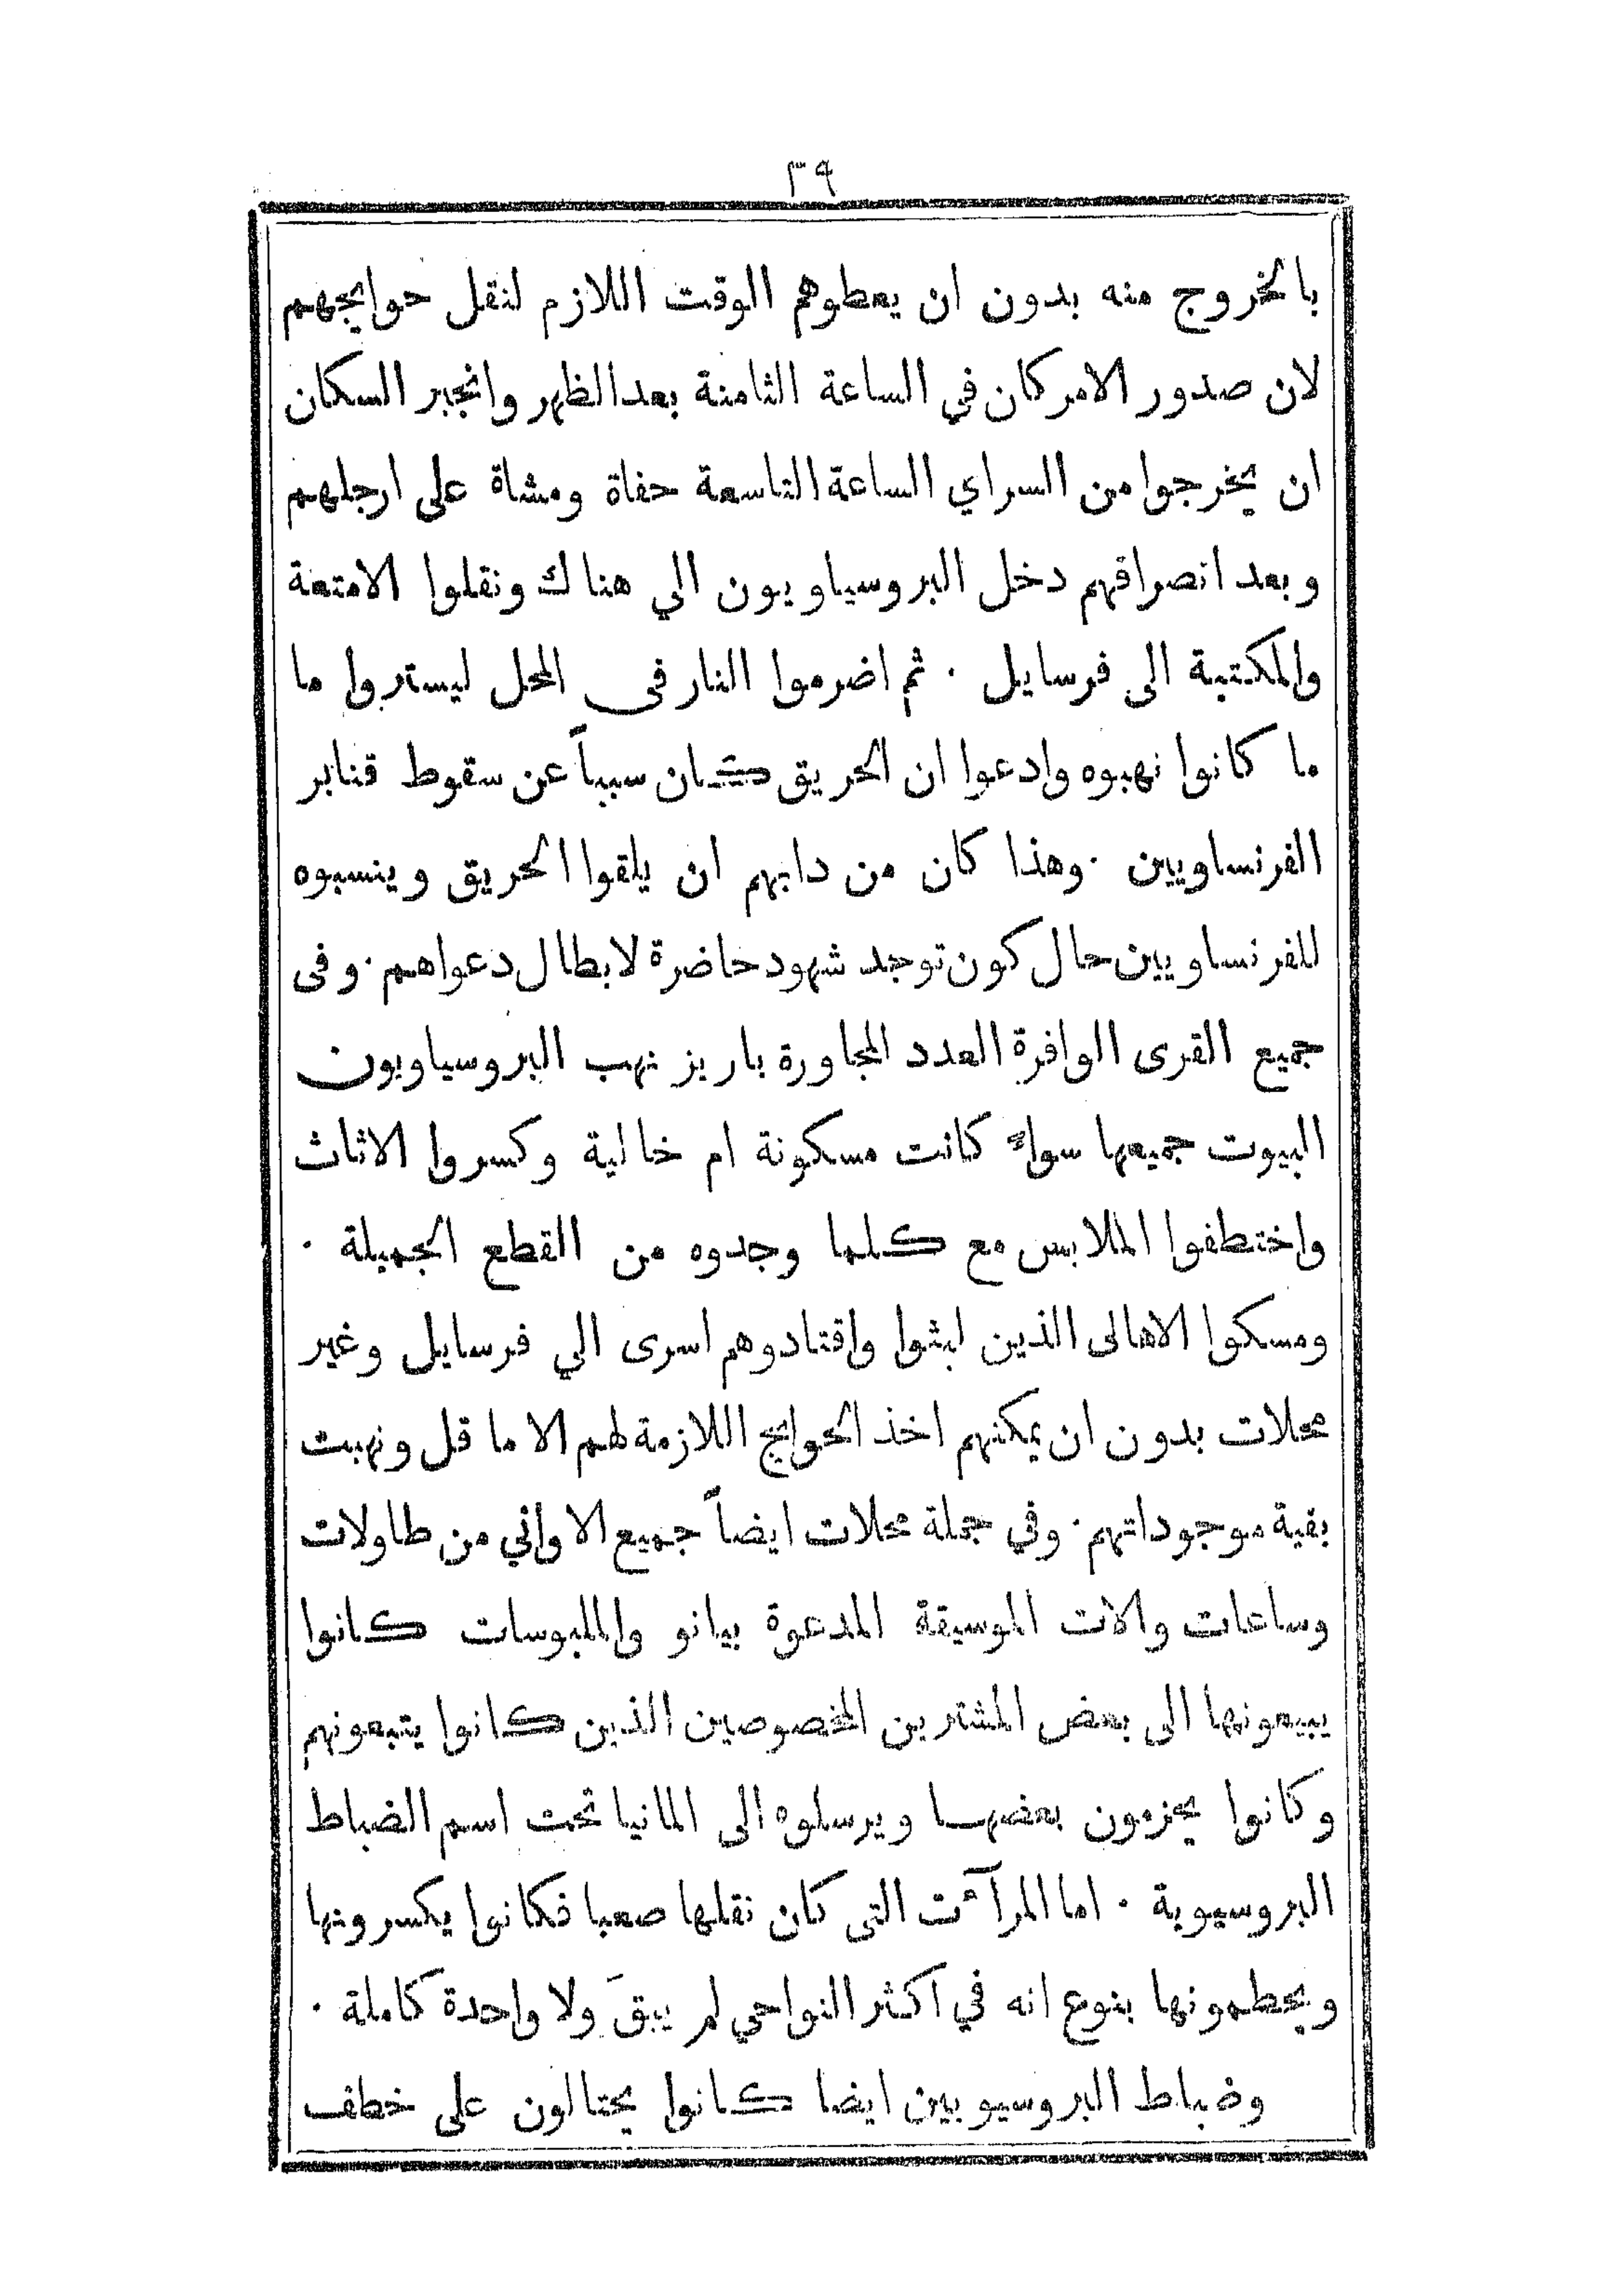 ٣٩
بالخروج منه بدون ان يعطوهم الوقت اللازم لنقل حوايجهم
لان صدور الامر كان في الساعة الثامنة بعد الظهر وانجبر السكان
ان يخرجوا من السراي الساعة التاسعة حفاة ومشاة على ارجلهم
وبعد انصرافهم دخل البروسياويون الي هناك ونقلوا الامتعة
والمكتبة الى فرسايل · ثم اضرموا النار فى المحل ليستروا ما
ما كانوا نهبوه وادعوا ان الحريق كان سبباً عن سقوط قنابر
الفرنساويين · وهذا كان من دابهم ان يلقوا الحريق وينسبوه
للفرنساويين حال كون توجد شهود حاضرة لابطال دعواهم · وفى
جميع القرى الوافرة العدد المجاورة باريز نهب البروسياويون
البيوت جميعها سواءً كانت مسكونة ام خالية وكسروا الاثاث
واختطفوا الملابس مع كلما وجدوه من القطع الجميلة ·
ومسكوا الاهالى الذين لبثوا واقتادوهم اسرى الي فرسايل وغير
محلات بدون ان يمكنهم اخذ الحوايج اللازمة لهم الا ما قل ونهبت
بقية موجوداتهم · وفي جملة محلات ايضاً جميع الاواني من طاولات
وساعات والات الموسيقة المدعوة بيانو والملبوسات كانوا
يبيعونها الى بعض المشترين المخصوصين الذين كانوا يتبعونهم
وكانوا يحزمون بعضها ويرسلوه الى المانيا تحت اسم الضباط
البروسيوية · اما المرآئت التى كان نقلها صعبا فكانوا يكسرونها
ويحطمونها بنوع انه في اكثر النواحي لم يبقَ ولا واحدة كاملة ·
وضباط البروسيوبين ايضا كانوا يحتالون على خطف